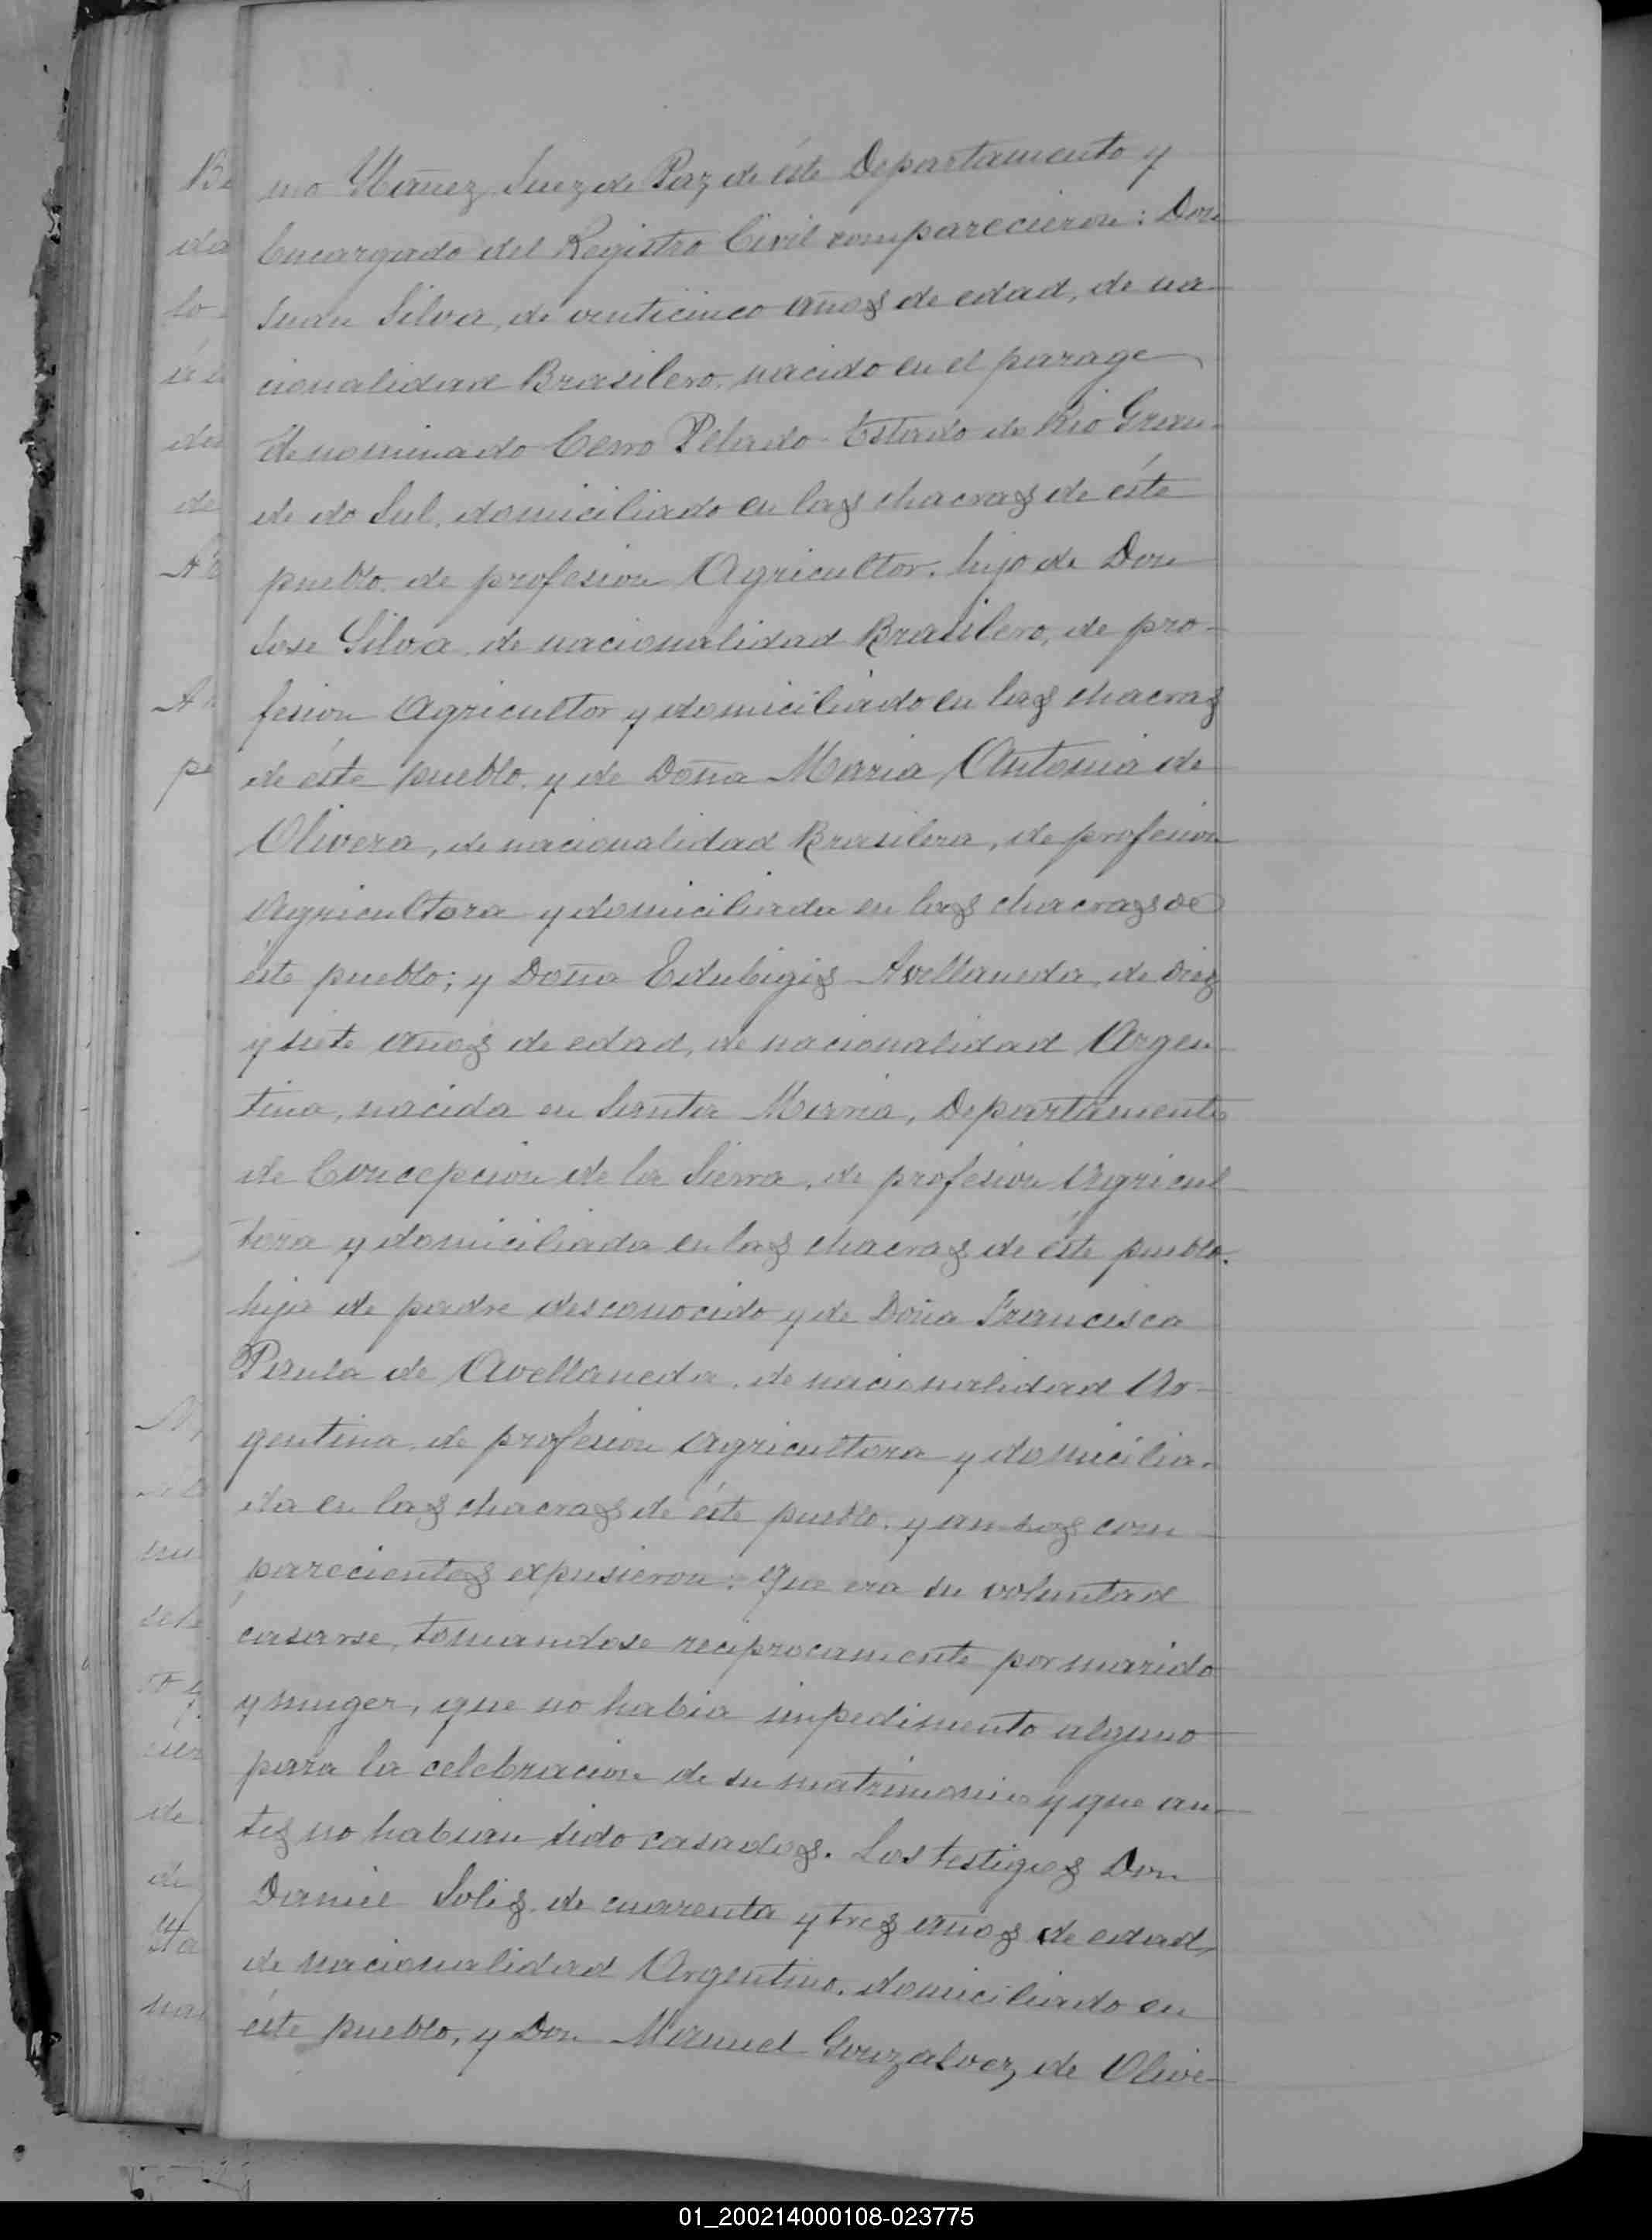 mo Ybañez Juez de Paz de éste Departamento y
Encargado del Registro Civil comparecieron: Don
Juan Silva, de venticinco años de edad, de na-
cionalidad Brasilero, nacido en el parage
denominado Cerro Pelado Estado de Rio Gran-
de do Sul, domiciliado en las chacras de éste
pueblo, de profesion Agricultor, hijo de Don
Jose Silva, de nacionalidad Brasilero, de pro-
fesion Agricultor y domiciliado en las chacras
de éste pueblo, y de Doña Maria Antonia de
Olivera, de nacionalidad Brasilera, de profesion
Agricultora y domiciliada en las chacras de
éste pueblo; y Doña Edubigis Avellaneda, de diez
y siete años de edad, de nacionalidad Argen-
tina, nacida en Santa Maria, Departamento
de Concepcion de la Sierra, de profesion Agricul-
tora y domiciliada en las chacras de éste pueblo.
hija de padre desconocido y de Doña Francisca
Paula de Avellaneda, de nacionalidad Ar-
gentina, de profesion Agricultora y domicilia-
da en las chacras de éste pueblo, y ambos com
parecientes expusieron: Que era su voluntad
casarse, tomandose reciprocamente por marido
y muger, que no habia impedimento alguno
para la celebracion de su matrimonio y que an-
tes no habian sido casados. Los testigos Don
Daniel Solis, de cuarenta y tres años de edad,
de nacionalidad Argentino, domiciliado en
éste pueblo, y Don Manuel Gonzalvez de Olive-
01_200214000108-023775